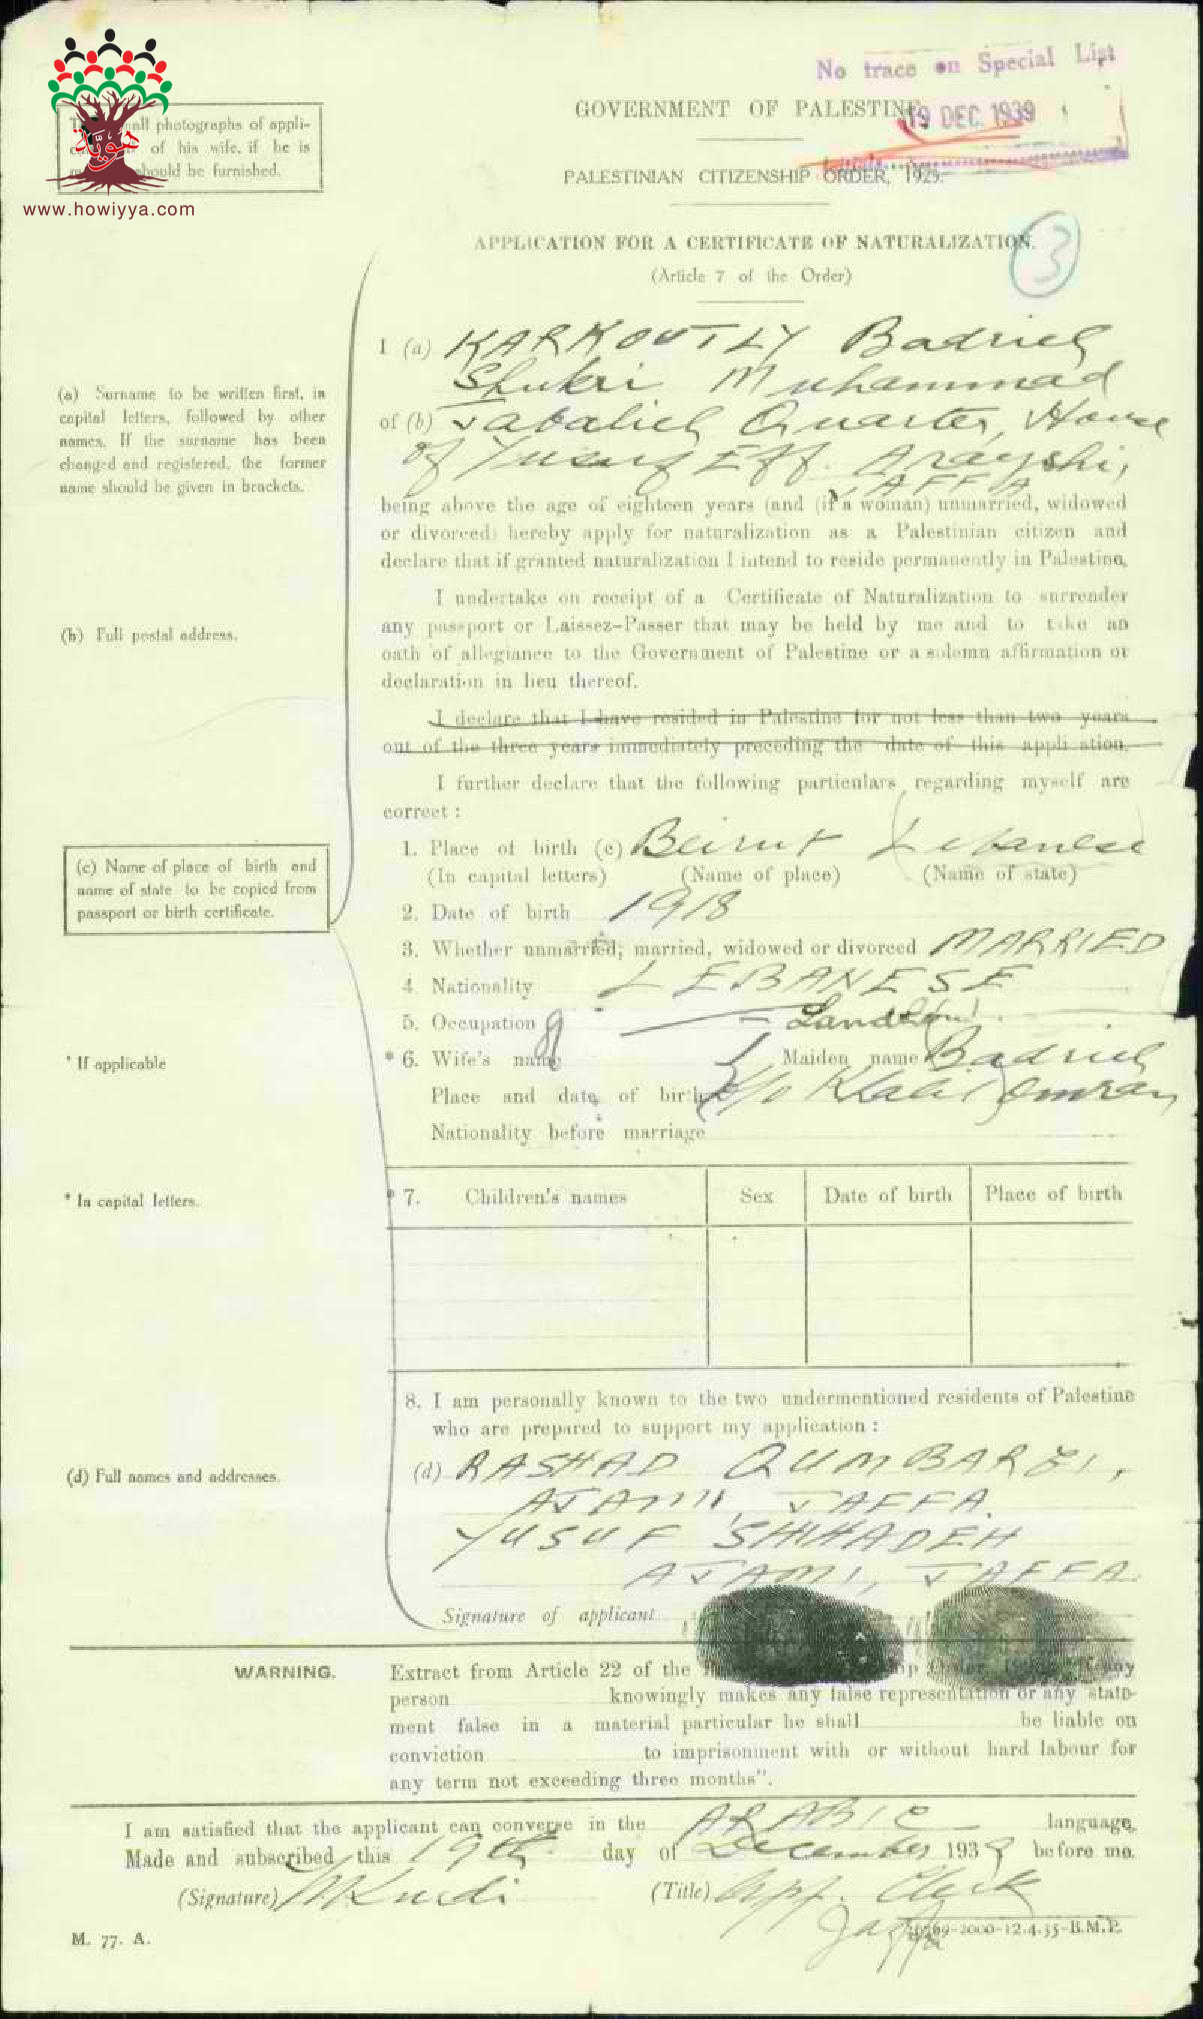 No trace on Special List
GOVERNMENT OF PALESTINE.
19 DEC. 1939
PALESTINIAN CITIZENSHIP ORDER, 1925.
small photographs of appli-
of his wife, if he is
should be furnished.
هوية
www.howiyya.com
APPLICATION FOR A CERTIFICATE OF NATURALIZATION.
3
(Article 7 of the Order)
I (a) KARKOUTLY Badrieh
Shukri Muhammad
of (b) Jabalieh Quarter, House
of Yusuf Eff. Arayshi,
JAFFA
(a) Surname to be written first, in
capital letters, followed by other
names. If the surname has been
changed and registered, the former
name should be given in brackets.
being above the age of eighteen years (and (if a woman) unmarried, widowed
or divorced) hereby apply for naturalization as a Palestinian citizen and
declare that if granted naturalization I intend to reside permanently in Palestine.
I undertake on receipt of a Certificate of Naturalization to surrender
any passport or Laissez-Passer that may be held by me and to take an
oath of allegiance to the Government of Palestine or a solemn affirmation or
declaration in lieu thereof.
(b) Full postal address.
I declare that I have resided in Palestine for not less than two years
out of the three years immediately preceding the date of this application.
I further declare that the following particulars regarding myself are
correct :
1. Place of birth (c) Beirut Lebanese
(In capital letters) (Name of place) (Name of state)
(c) Name of place of birth and
name of state to be copied from
passport or birth certificate.
2. Date of birth 1918
3. Whether unmarried, married, widowed or divorced MARRIED
4. Nationality LEBANESE
5. Occupation
* If applicable
* 6. Wife's name Maiden name Badrieh
Place and date of birth
Nationality before marriage
* In capital letters.
* 7. Children's names Sex Date of birth Place of birth
8. I am personally known to the two undermentioned residents of Palestine
who are prepared to support my application :
(d) Full names and addresses.
(d) RASHAD QUMBARGI,
AJAMI, JAFFA.
YUSUF SHIHADEH
AJAMI, JAFFA.
Signature of applicant
WARNING.
Extract from Article 22 of the Order, any
person knowingly makes any false representation or any state-
ment false in a material particular he shall be liable on
conviction to imprisonment with or without hard labour for
any term not exceeding three months".
I am satisfied that the applicant can converse in the ARABIC language.
Made and subscribed this 19th day of December 1939 before me.
(Signature) (Title) Clerk
Jaffa
M. 77. A.
-2000-12.4.35-B.M.P.